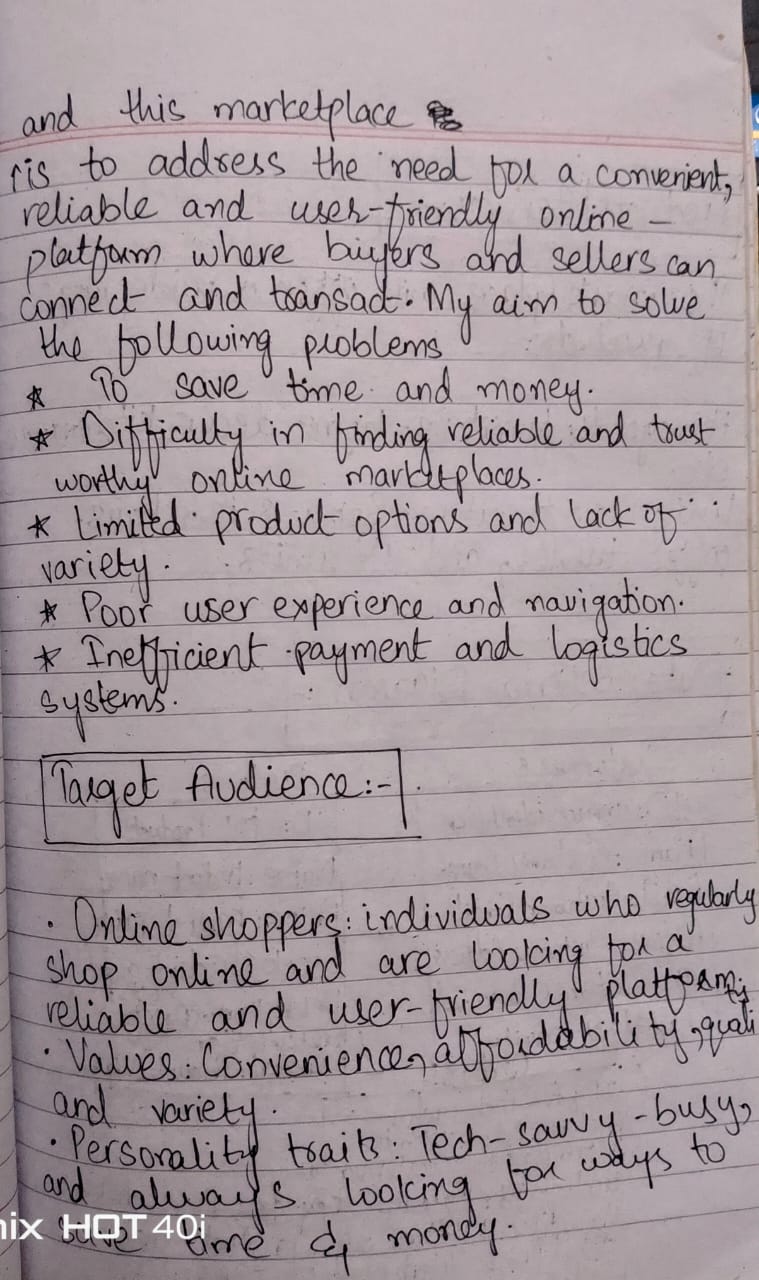 and this marketplace
is to address the need for a convenient,
reliable and user-friendly online -
platform where buyers and sellers can
connect and transact. My aim to solve
the following problems
* To save time and money.
* Difficulty in finding reliable and trust
worthy online marketplaces.
* Limited product options and lack of
variety.
* Poor user experience and navigation.
* Inefficient payment and logistics
systems.
Target Audience:-
· Online shoppers: individuals who regularly
shop online and are looking for a
reliable and user-friendly platform,
· Values: Convenience, affordability, quali
and variety.
· Personality traits: Tech-savvy-busy,
and always looking for ways to
save time & money.
nix HOT 40i